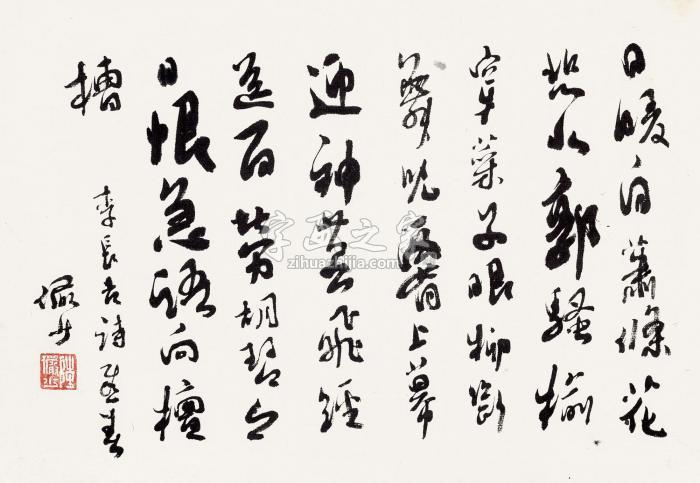 日暖自蕭條花
悲北郭騷榆
穿萊子眼柳斷
舞兒腰上幕
迎神燕飛絲
送百勞胡琴今
日恨急語向檀
槽
李長吉詩感春
儼少
字画之家
zihuazhijia.com